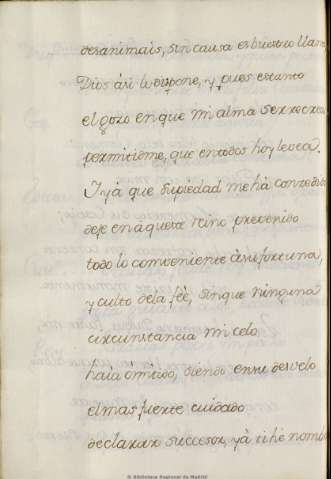 desanimais, sin causa es vuestro llan
Dios asi lo dispone, y pues es tanto
el gozo en que mi alma se recrea
permitidme, que en todos hoy le vea.
Y yá que su piedad me há concedido
dejè en aqueste reino prevenido
todo lo conveniente á su fortuna,
y culto de la fée, sin que ninguna
circunstancia mi celo
haia omitido, siendo en mi desvelo
el mas fuerte cuidado
declarar succesor, yá le hé nomb
© Biblioteca Nacional de Madrid